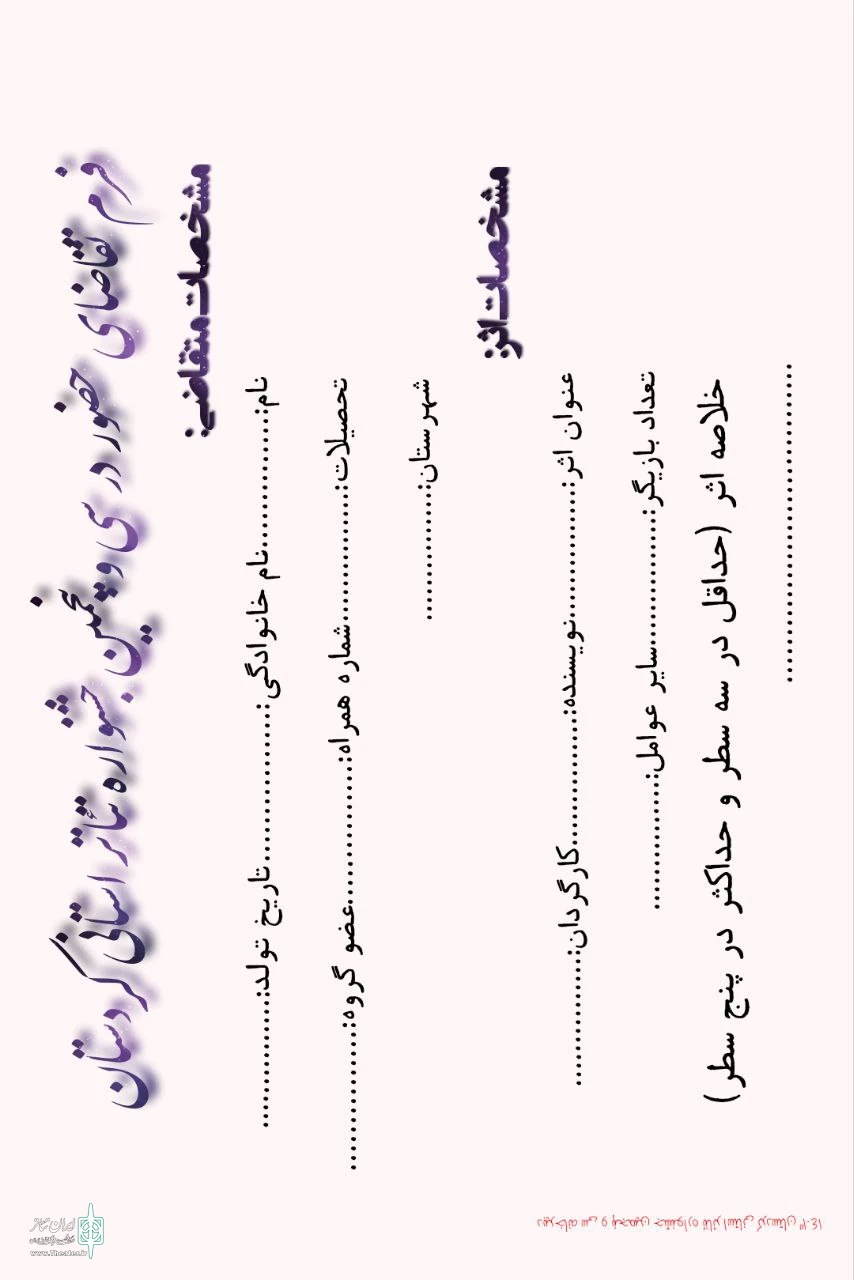 فرم تقاضای حضور در سی و پنجمین جشنواره تئاتر استانی کردستان
مشخصات متقاضی:
نام:................نام خانوادگی:..................تاریخ تولد:................
تحصیلات:................شماره همراه:.................عضو گروه:.................
شهرستان:................
مشخصات اثر:
عنوان اثر:................نویسنده:................کارگردان:................
تعداد بازیگر:................سایر عوامل:................
خلاصه اثر (حداقل در سه سطر و حداکثر در پنج سطر)
......................................
دبیرخانه سی و پنجمین جشنواره تئاتر استانی کردستان ۱۴۰۳
ایران تئاتر
www.Theater.ir